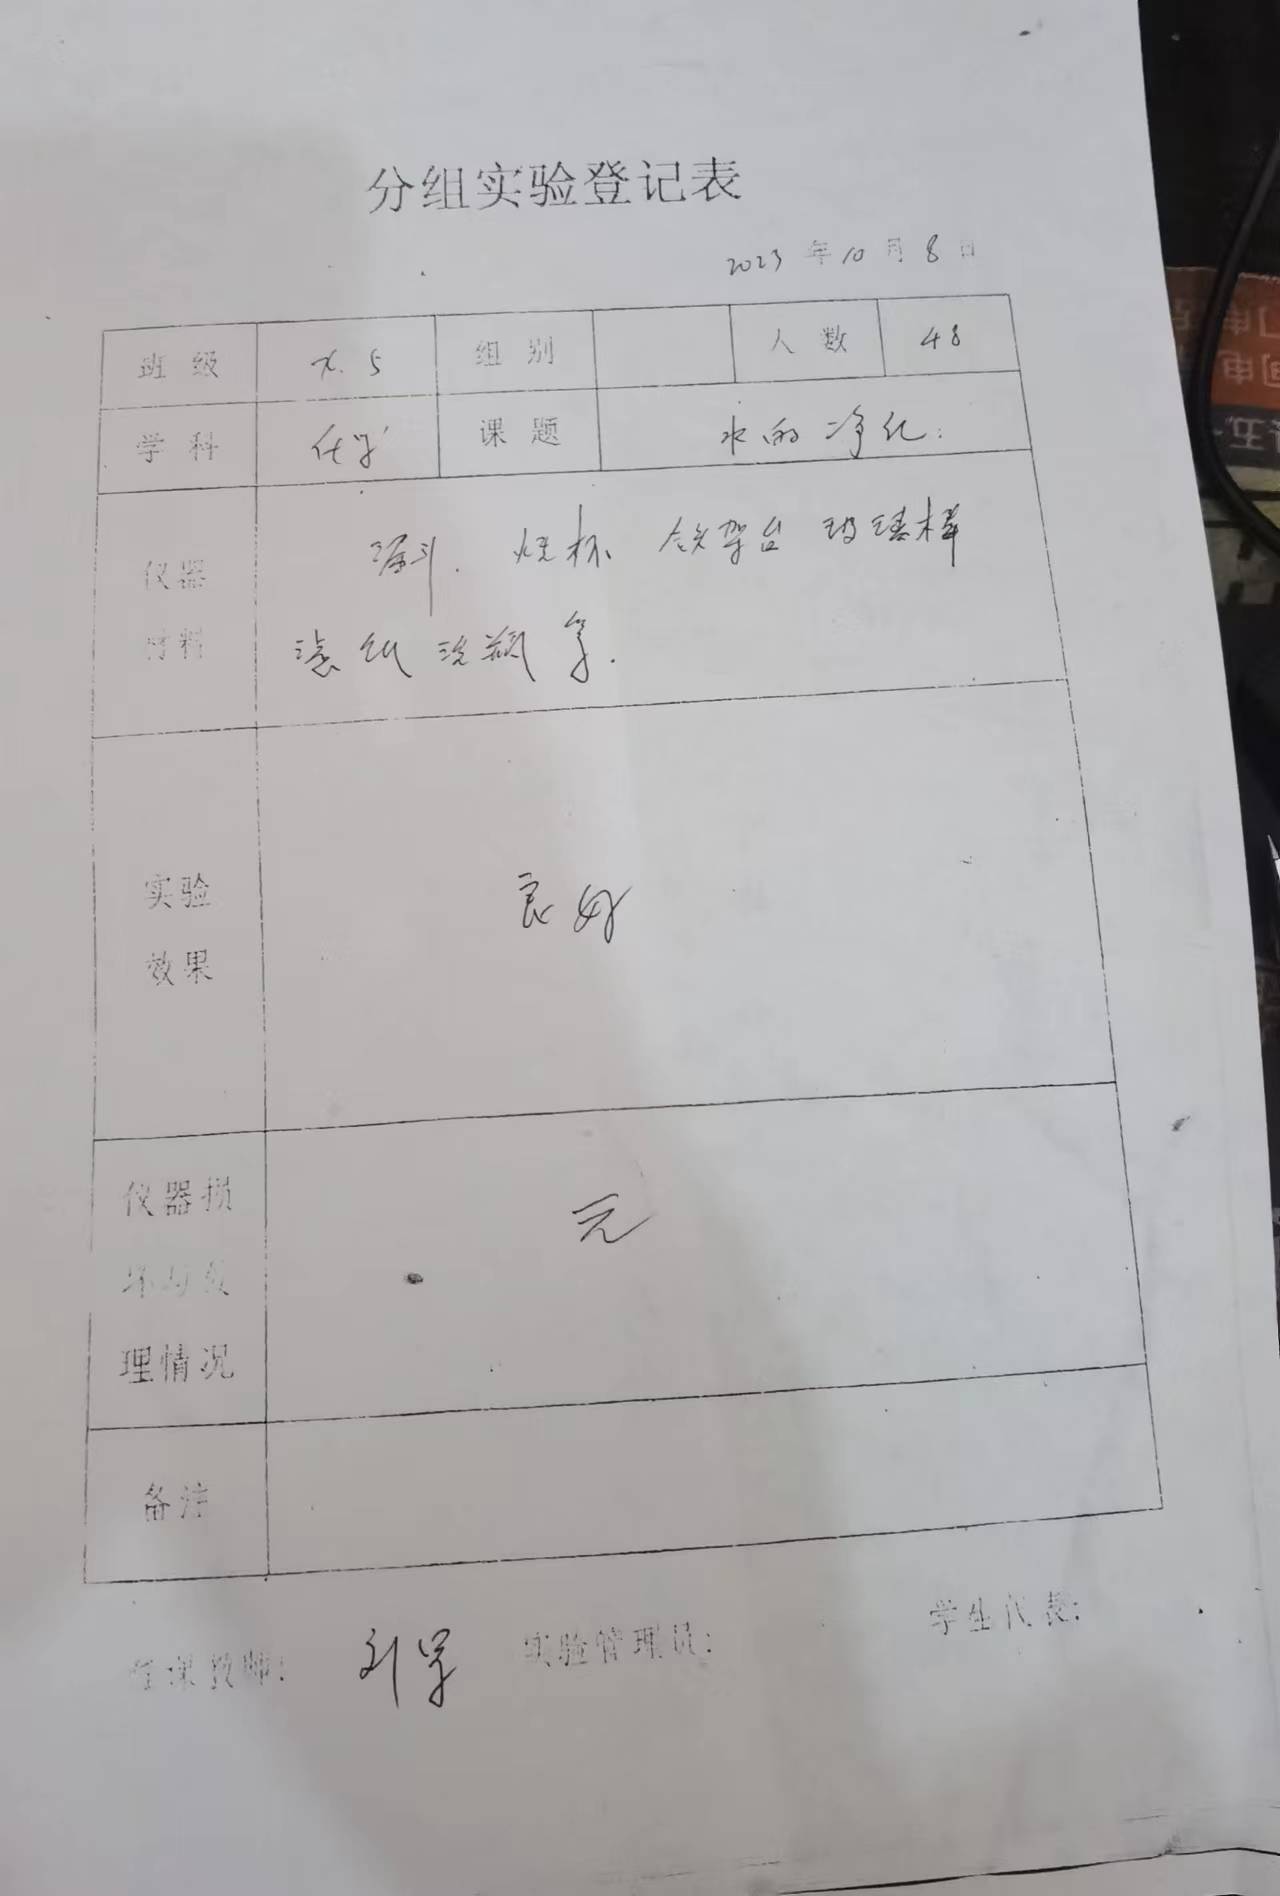 分组实验登记表
2023年10月8日
班级 九.5 组别 人数 48
学科 化学 课题 水的净化
仪器材料 漏斗. 烧杯 铁架台 玻璃棒
滤纸 洗瓶等.
实验效果 良好
仪器损坏与处理情况 无
备注
任课教师: 刘军 实验管理员: 学生代表: